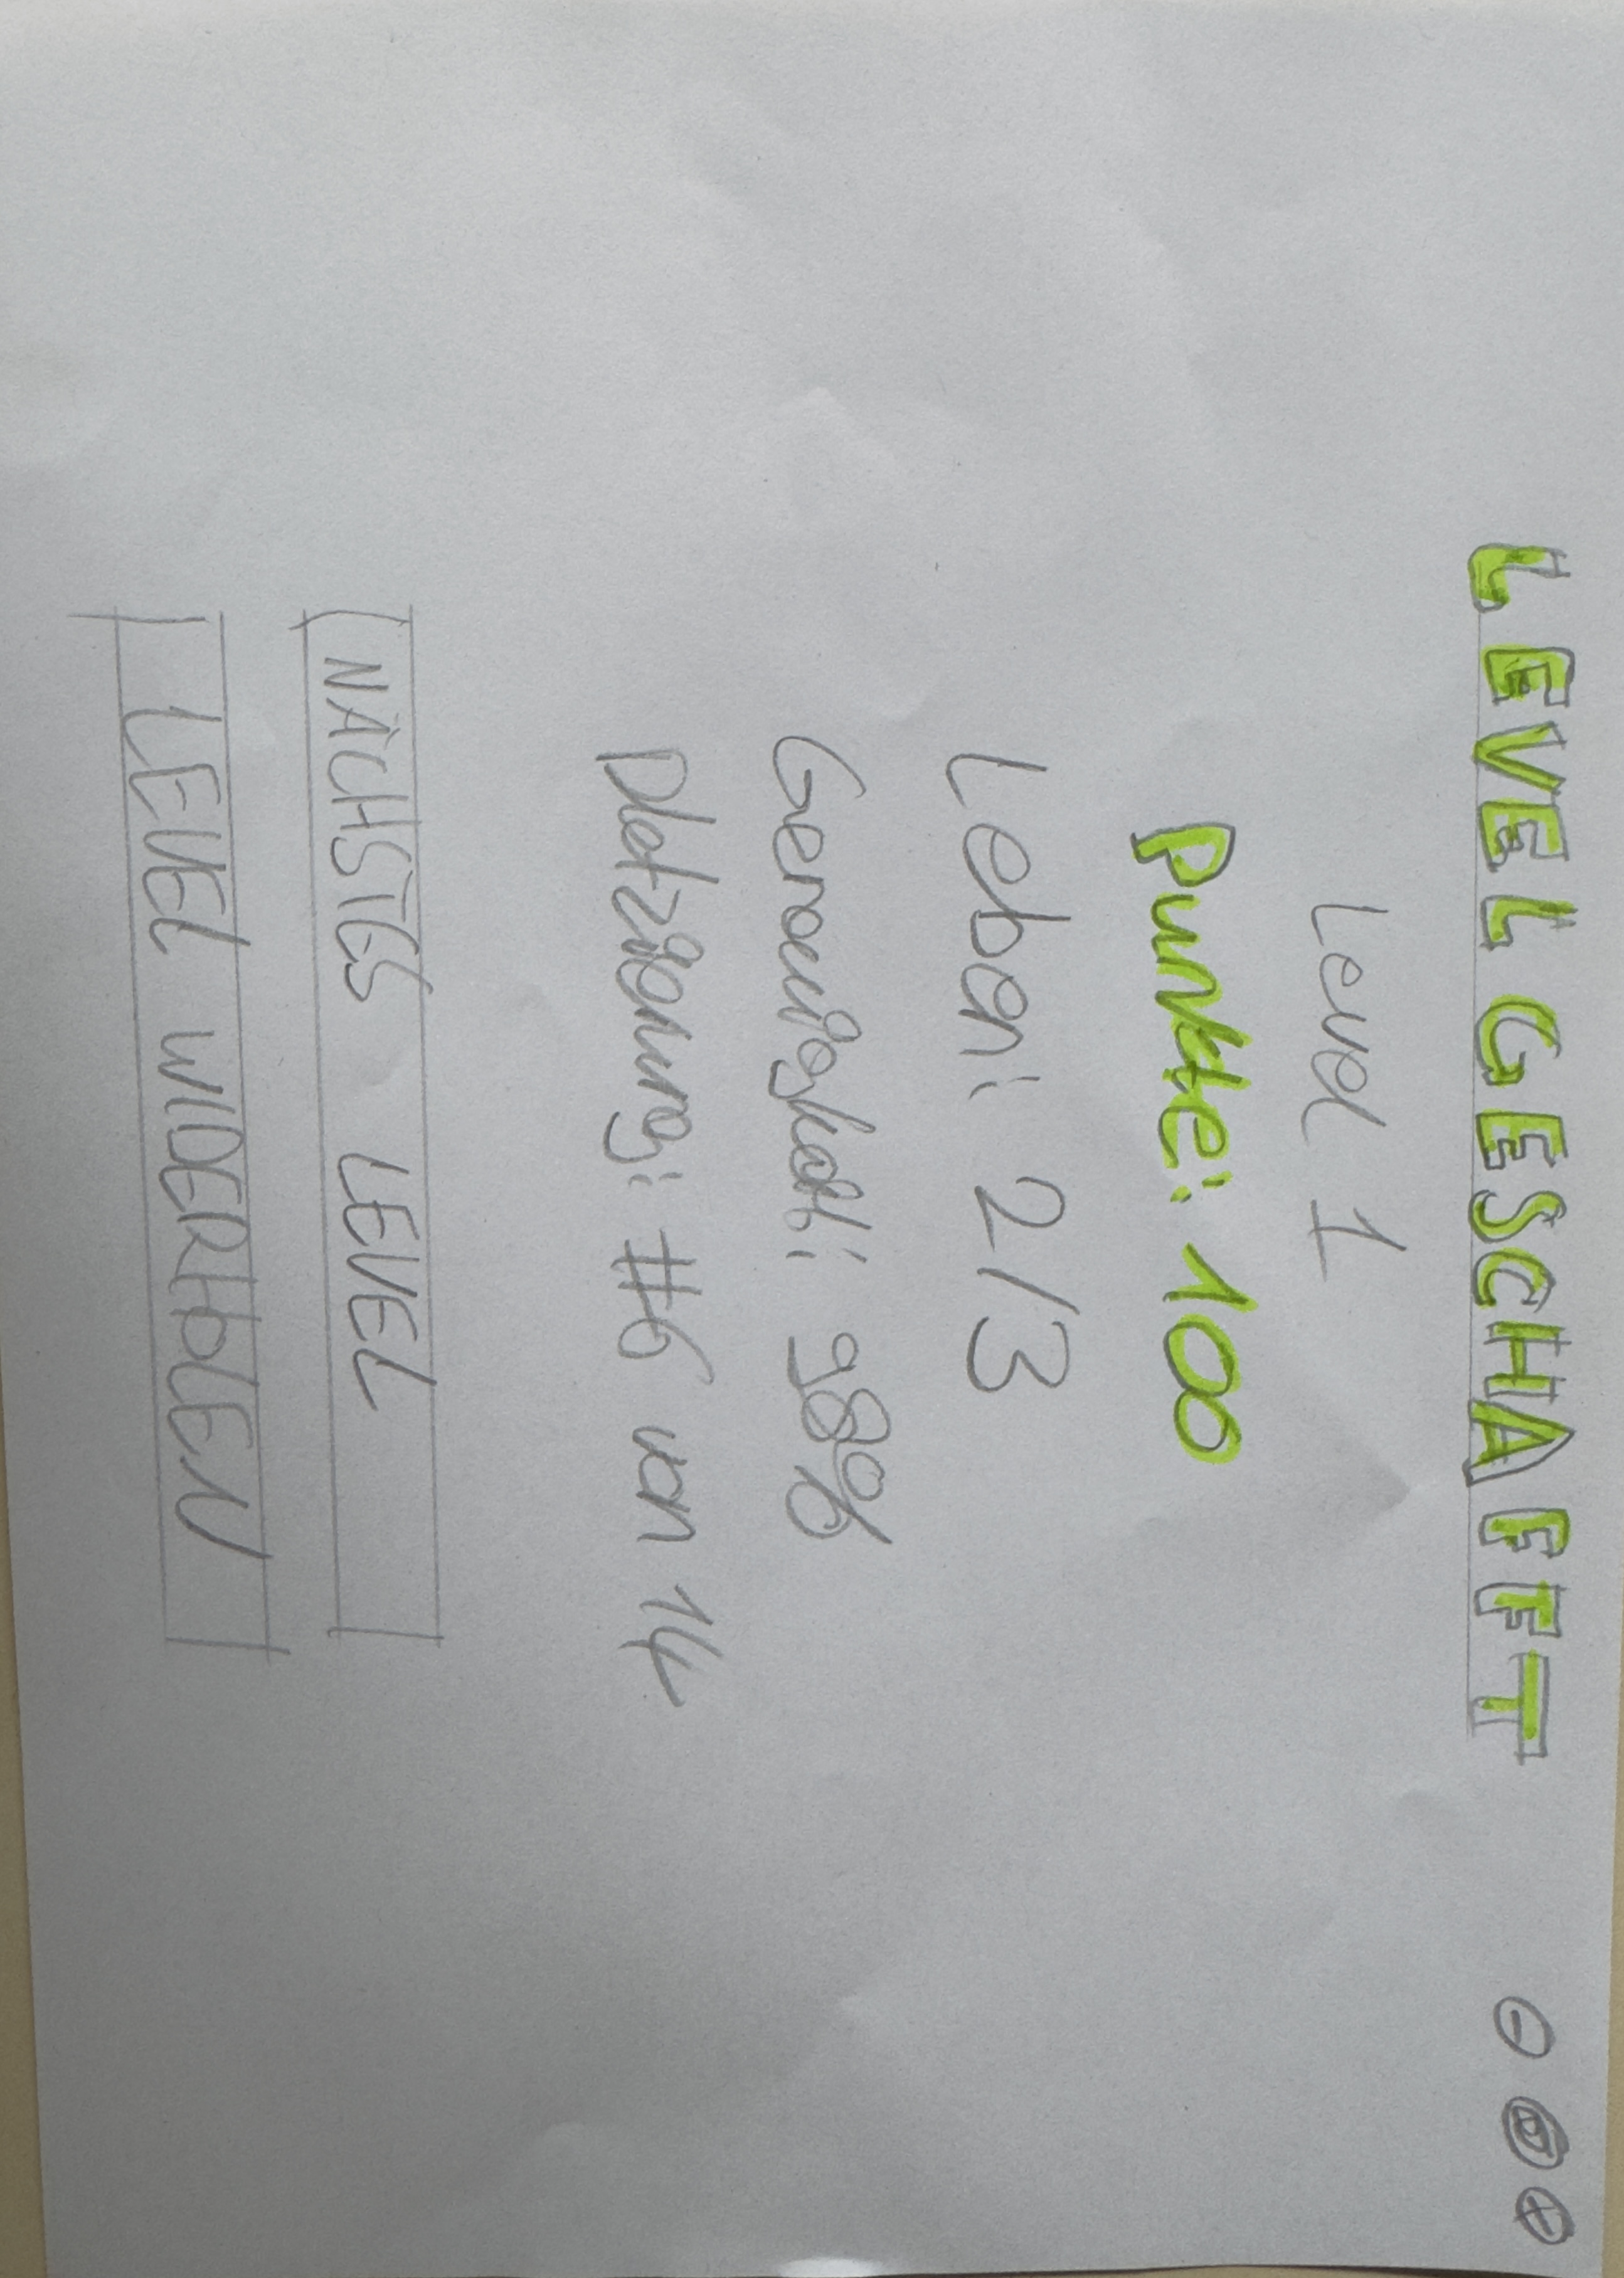 LEVEL GESCHAFFT
Level 1
Punkte: 100
Leben: 2/3
Genauigkeit: 98%
Platzierung: #6 von 14
NÄCHSTES LEVEL
LEVEL WIDERHOLEN